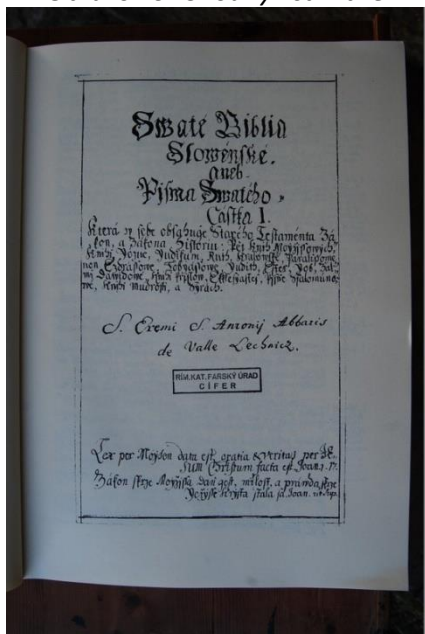 Swaté Biblia
Slowénské.
aneb
Pjsma Swatého,
Částka I.
Která w sebe obsahuge Starého Testamenta Zá-
kon, a Zákona Historiu: Pět Knih Moyžjssowých,
Knihi Jozue, Judikum, Ruth, Kralowské, Paralipome-
non, Ezdrássowe, Tobyássowe, Judith, Ester, Job, Žal-
mi Dawidowe, Knihi Prjslow, Ekklesiastes, Pjsne Ssalomúno-
we, Knihi Mudrosti, a Syrach.
S. Eremi S. Antonij Abbatis
de Valle Lechnicz.
RÍM.KAT.FARSKÝ ÚRAD
CÍFER
Lex per Moysen data est, gratia & veritas per JE-
SUM Christum facta est Joan. 1. 17.
Zákon skrze Moyžjssa daní gest, milost, a prawda skrze
Gežjsse Krysta stala sa. Joan.